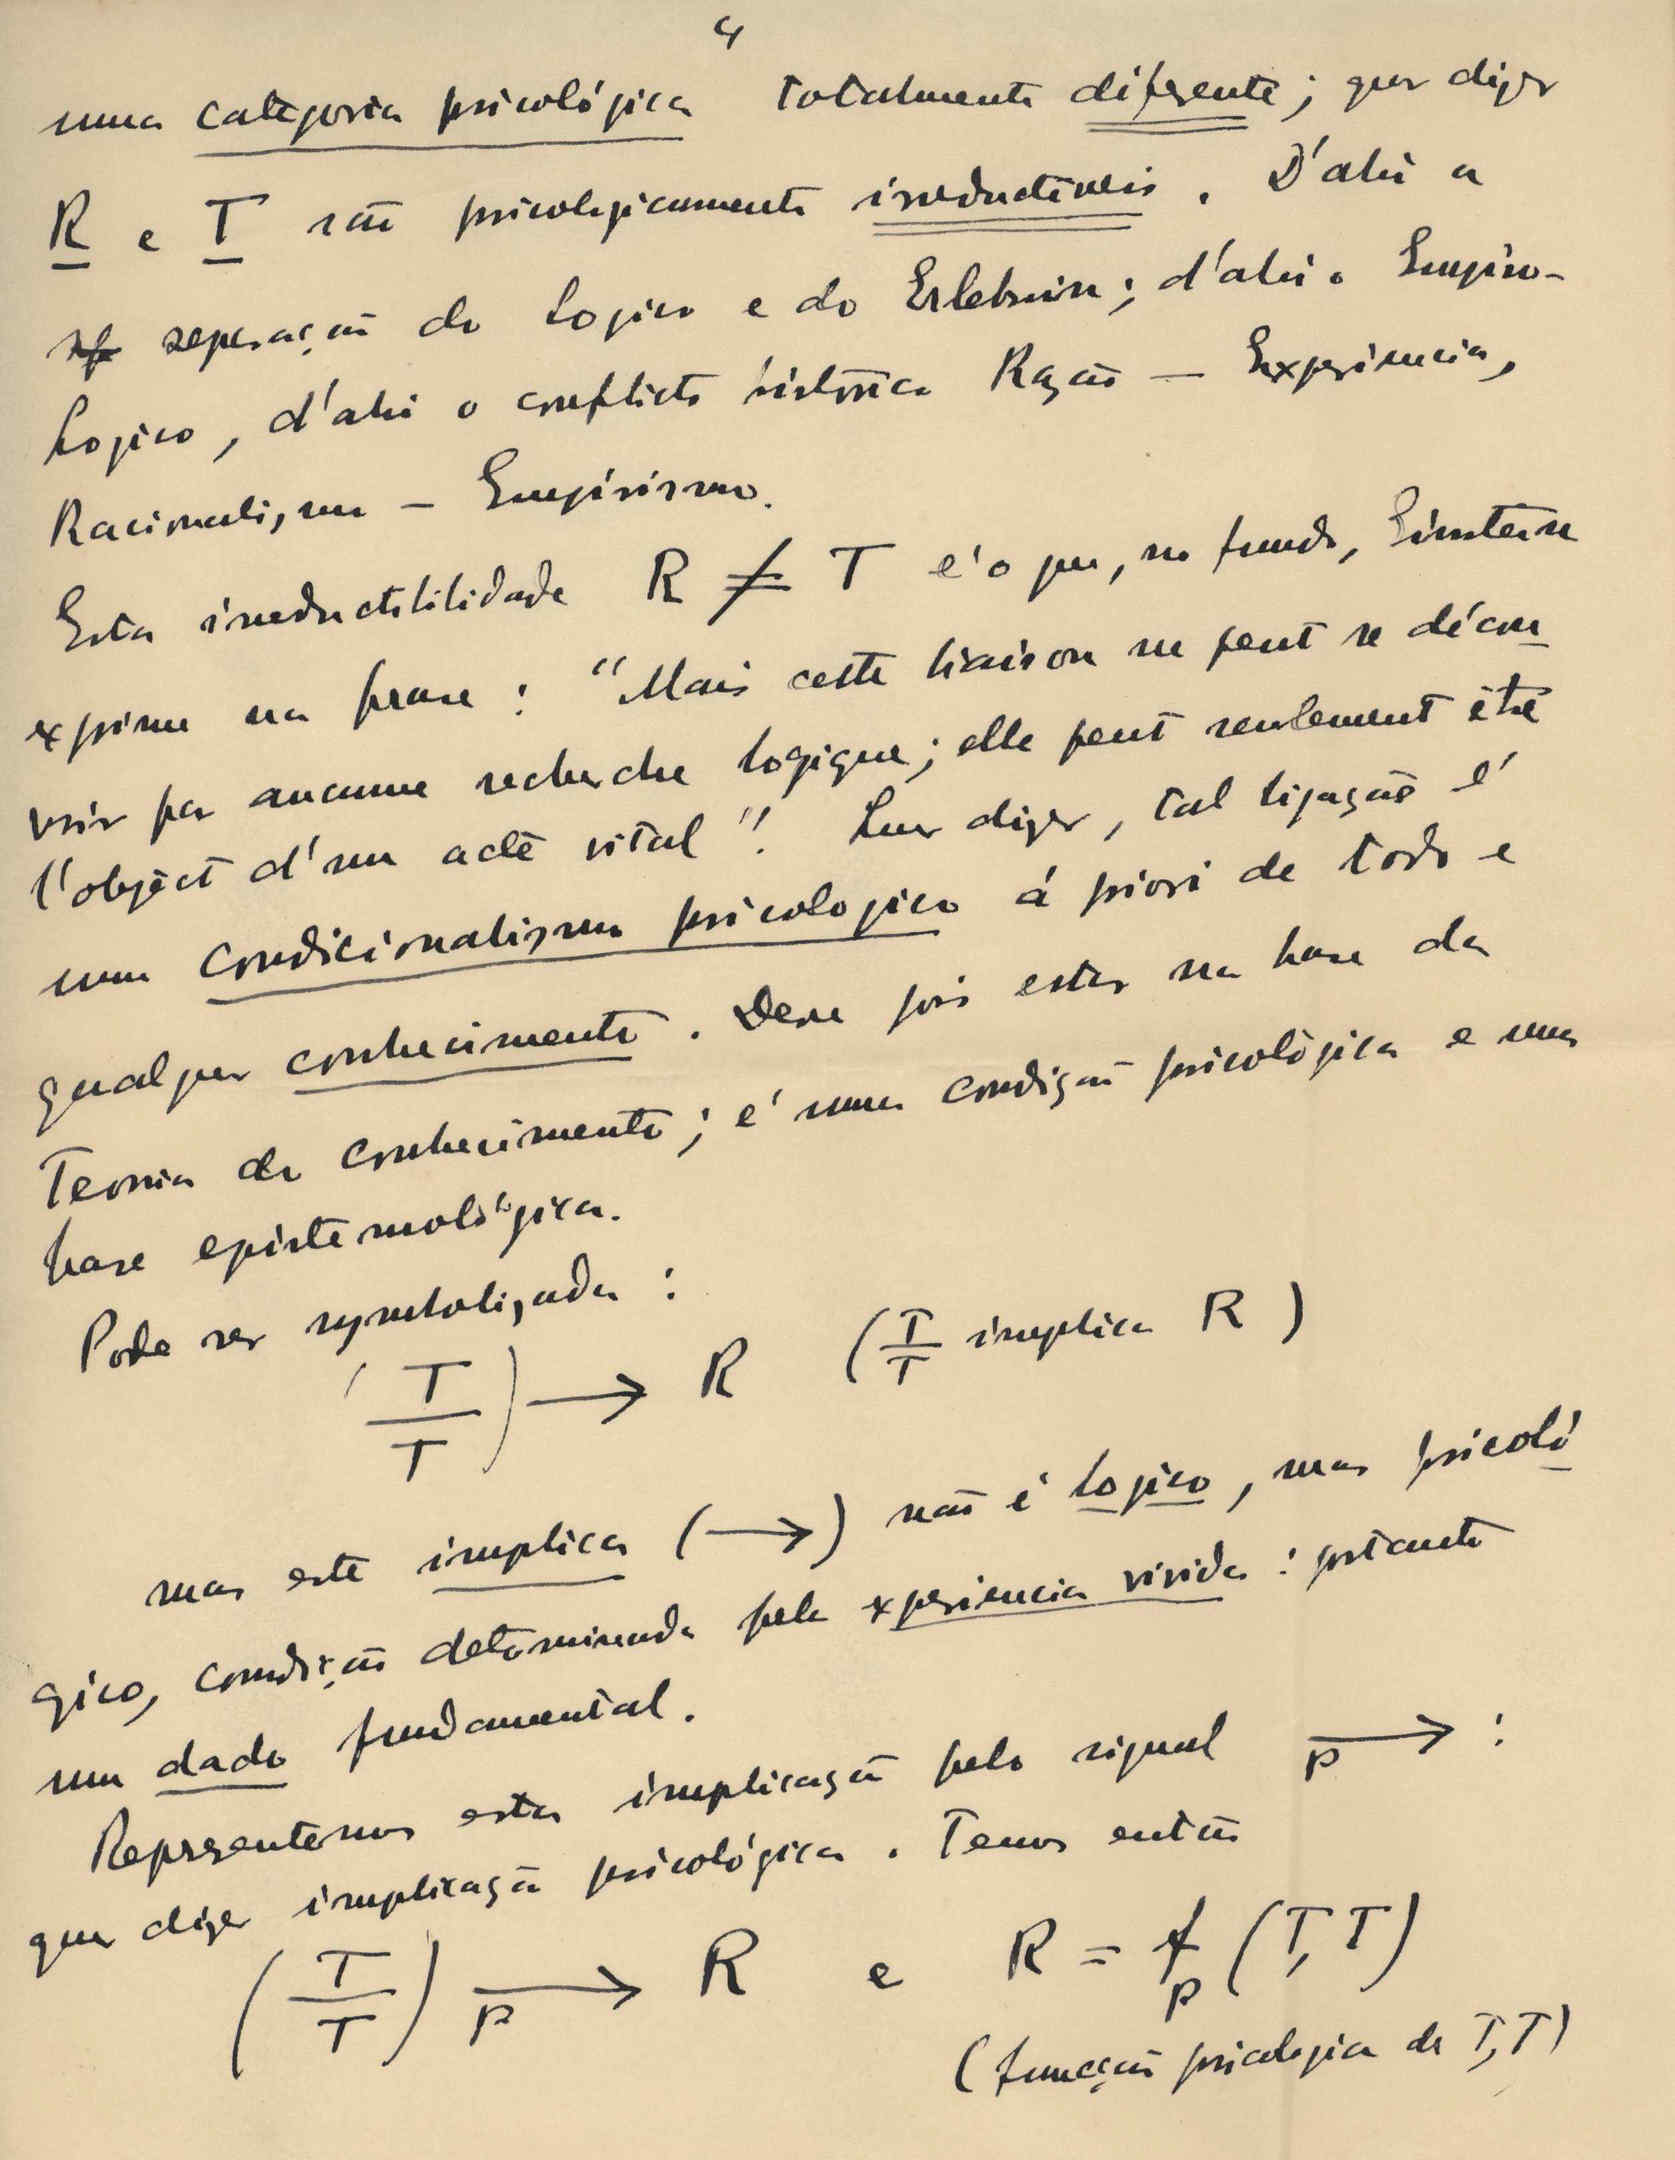 4
uma categoria psicológica totalmente diferente; quer dizer
R e T são psicologicamente irreductiveis. D'ahi a
separação do Logico e do Erlebnis; d'ahi o Empiro-
Logico, d'ahi o conflicto histórico Razão — Experiencia,
Racionalismo — Empirismo.
Esta irreductibilidade R ≠ T é o que, no fundo, Einstein
exprime na frase : "Mais cette liaison ne peut se décou
vrir par aucune recherche logique; elle peut seulement être
l'object d'un acte vital"! Quer dizer, tal ligação é
um condicionalismo psicologico á priori de todo e
qualquer conhecimento. Deve pois estar na base da
Teoria do conhecimento; é uma condição psicológica e uma
base epistemológica.
Pode ser symbolizada :
(T/T) → R (T/T implica R)
mas este implica (→) não é logico, mas psicoló
gico, condição determinada pela experiencia vivida : portanto
um dado fundamental.
Representemos esta implicação pelo signal p→ :
quer dizer implicação psicológica. Temos então
(T/T) p→ R e R = f p (T, T)
(funcção psicologica de T, T)